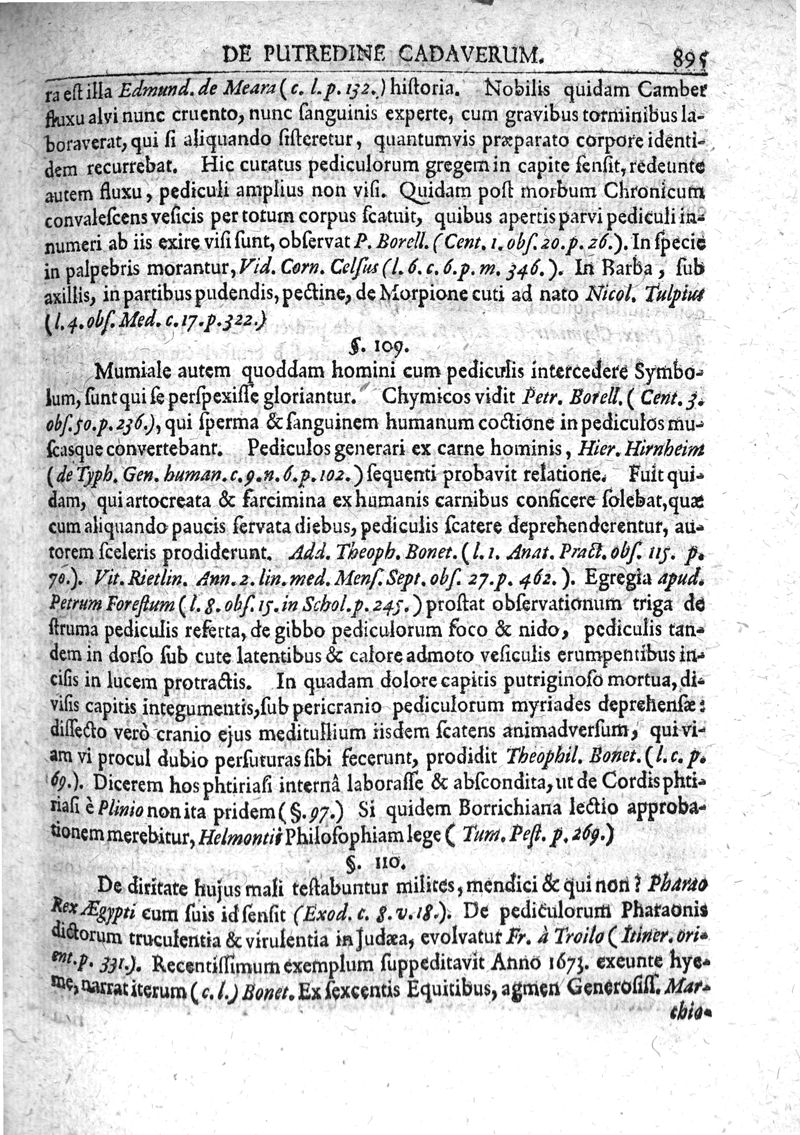 DE PUTREDINE CADAVERUM. 895
ra eſt illa Edmund. de Meara (c. l. p. 132.) hiſtoria. Nobilis quidam Camber
fluxu alvi nunc cruento, nunc ſanguinis experte, cum gravibus torminibus la-
boraverat, qui ſi aliquando ſiſteretur, quantumvis præparato corpore identi-
dem recurrebat. Hic curatus pediculorum gregem in capite ſenſit, redeunte
autem fluxu, pediculi amplius non viſi. Quidam poſt morbum Chronicum
convaleſcens veſicis per totum corpus ſcatuit, quibus apertis parvi pediculi in-
numeri ab iis exire viſi ſunt, obſervat P. Borell. (Cent. 1. obſ. 20. p. 26.). In ſpecie
in palpebris morantur, Vid. Corn. Celſus (l. 6. c. 6. p. m. 346.). In Barba, ſub
axillis, in partibus pudendis, pectine, de Morpione cuti ad nato Nicol. Tulpius
(l. 4. obſ. Med. c. 17. p. 322.)
§. 109.
Mumiale autem quoddam homini cum pediculis intercedere Symbo-
lum, ſunt qui ſe perſpexiſſe gloriantur. Chymicos vidit Petr. Borell. (Cent. 3.
obſ. 50. p. 236.), qui ſperma & ſanguinem humanum coctione in pediculos mu-
ſcasque convertebant. Pediculos generari ex carne hominis, Hier. Hirnheim
(de Typh. Gen. human. c. 9. n. 6. p. 102.) ſequenti probavit relatione. Fuit qui-
dam, qui artocreata & farcimina ex humanis carnibus conficere ſolebat, quæ
cum aliquando paucis ſervata diebus, pediculis ſcatere deprehenderentur, au-
torem ſceleris prodiderunt. Add. Theoph. Bonet. (l. 1. Anat. Pract. obſ. 115. p.
70.). Vit. Rietlin. Ann. 2. lin. med. Menſ. Sept. obſ. 27. p. 462.). Egregia apud.
Petrum Foreſtum (l. 8. obſ. 15. in Schol. p. 245.) proſtat obſervationum triga de
ſtruma pediculis referta, de gibbo pediculorum foco & nido, pediculis tan-
dem in dorſo ſub cute latentibus & calore admoto veſiculis erumpentibus in-
ciſis in lucem protractis. In quadam dolore capitis putriginoſo mortua, di-
viſis capitis integumentis, ſub pericranio pediculorum myriades deprehenſæ:
diſſecto verò cranio ejus meditullium iisdem ſcatens animadverſum, qui vi-
am vi procul dubio per ſuturas ſibi fecerunt, prodidit Theophil. Bonet. (l. c. p.
69.). Dicerem hos phtiriaſi internâ laboraſſe & abſcondita, ut de Cordis phti-
riaſi è Plinio non ita pridem (§. 97.) Si quidem Borrichiana lectio approba-
tionem merebitur, Helmontii Philoſophiam lege (Tum. Peſt. p. 269.)
§. 110.
De diritate hujus mali teſtabuntur milites, mendici & qui non? Pharao
Rex Ægypti cum ſuis id ſenſit (Exod. c. 8. v. 18.). De pediculorum Pharaonis
dictorum truculentia & virulentia in Judæa, evolvatur Fr. à Troilo (Itiner. ori-
ent. p. 331.). Recentiſſimum exemplum ſuppeditavit Anno 1673. exeunte hye-
me, narrat iterum (c. l.) Bonet. Ex ſexcentis Equitibus, agmen Generoſiſſ. Mar-
chio-